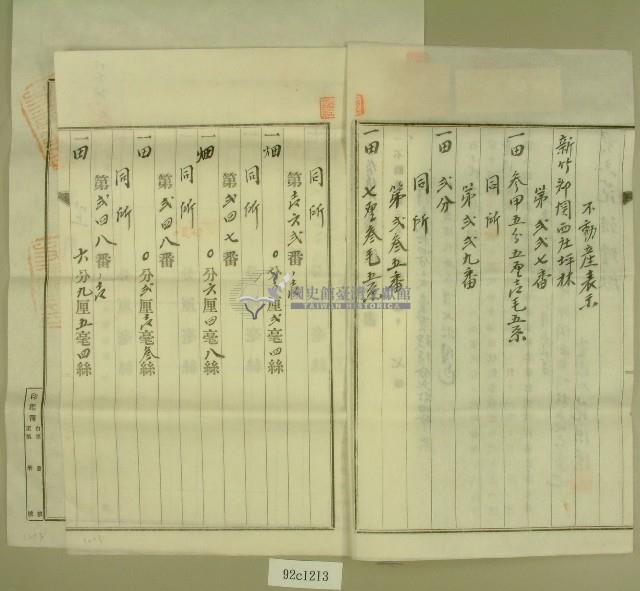 不動産表示
新竹郡関西庄坪林
第弐弐七番
一田 参甲五分五厘壱毛五糸
同所
第弐弐九番
一田 弐分
同所
第弐参五番
一田 七厘参毛五糸
同所
第壱六弐番ノ
一畑 〇分 厘弐毫四絲
同所
第弐四七番
一畑 〇分六厘四毫八絲
同所
第弐四八番
一田 〇分弐厘壱毫参絲
同所
第弐四八番ノ壱
一田 六分九厘五毫四絲
國史館臺灣文獻館
TAIWAN HISTORICA
印鑑簿
92c1213